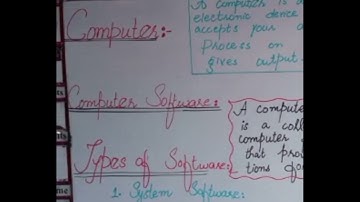 A computer is a
electronic device
accepts your
Process on
gives output.
Computer:-
Computer Software:
A compute
is a coll
computer
that pro
tions
Types of Software:
1. System Software:
me